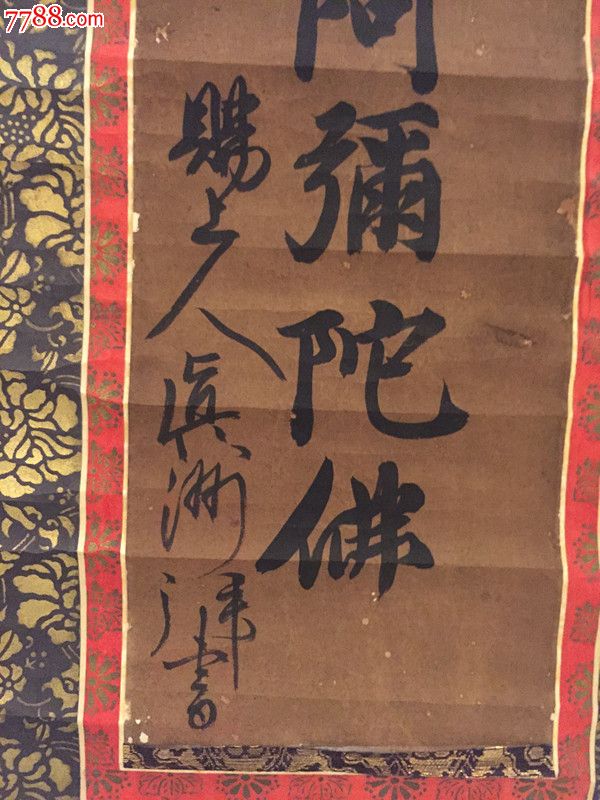 7788.com
阿彌陀佛
賜上人眞洲書